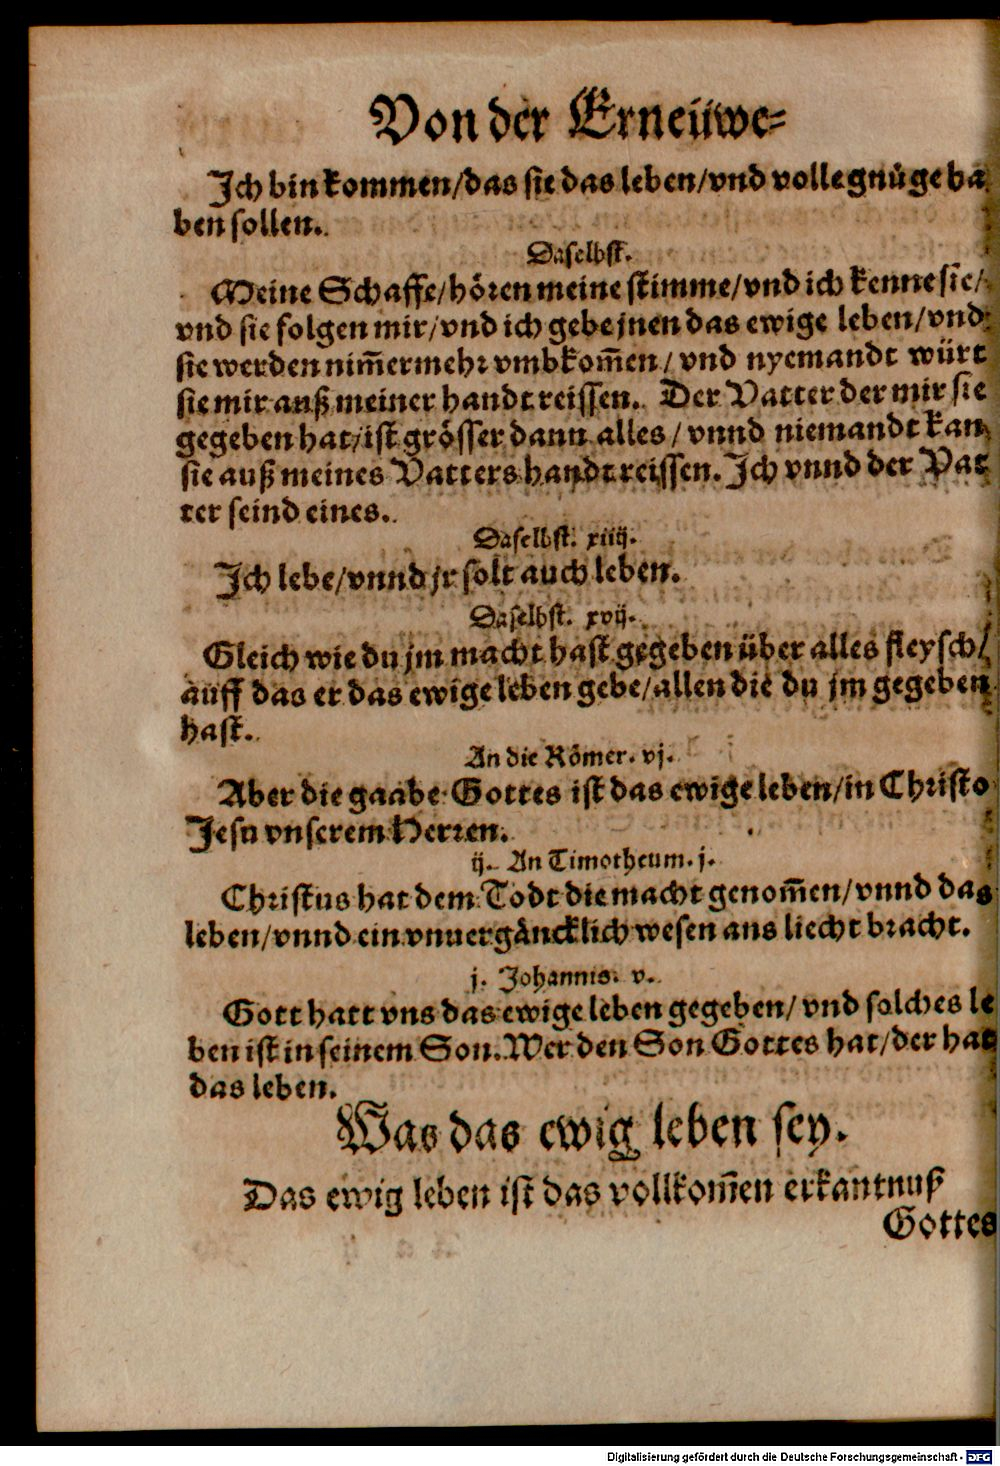 Von der Erneüwe-
Ich bin kommen/das sie das leben/vnd volle gnüge ha
ben sollen.
Daselbst.
Meine Schaffe/hören meine stimme/vnd ich kenne sie/
vnd sie folgen mir/vnd ich gebe jnen das ewige leben/vnd
sie werden nim̄ermehr vmbkom̄en/ vnd nyemandt würt
sie mir auß meiner handt reissen. Der Vatter der mir sie
gegeben hat/ist grösser dann alles/ vnnd niemandt kan
sie auß meines Vatters handt reissen. Ich vnnd der Vat
ter seind eines.
Daselbst. xiiij.
Ich lebe/vnnd jr solt auch leben.
Daselbst. xvij.
Gleich wie du jm macht hast gegeben über alles fleysch/
auff das er das ewige leben gebe/allen die du jm gegeben
hast.
An die Römer. vj.
Aber die gaabe Gottes ist das ewige leben/in Christo
Jesu vnserem Herren.
ij. An Timotheum. j.
Christus hat dem Todt die macht genom̄en/vnnd das
leben/vnnd ein vnuergäncklich wesen ans liecht bracht.
j. Johannis. v.
Gott hatt vns das ewige leben gegeben/ vnd solches le
ben ist in seinem Son. Wer den Son Gottes hat/der hat
das leben.
Was das ewig leben sey.
Das ewig leben ist das vollkom̄en erkantnuß
Gottes
Digitalisierung gefördert durch die Deutsche Forschungsgemeinschaft - DFG